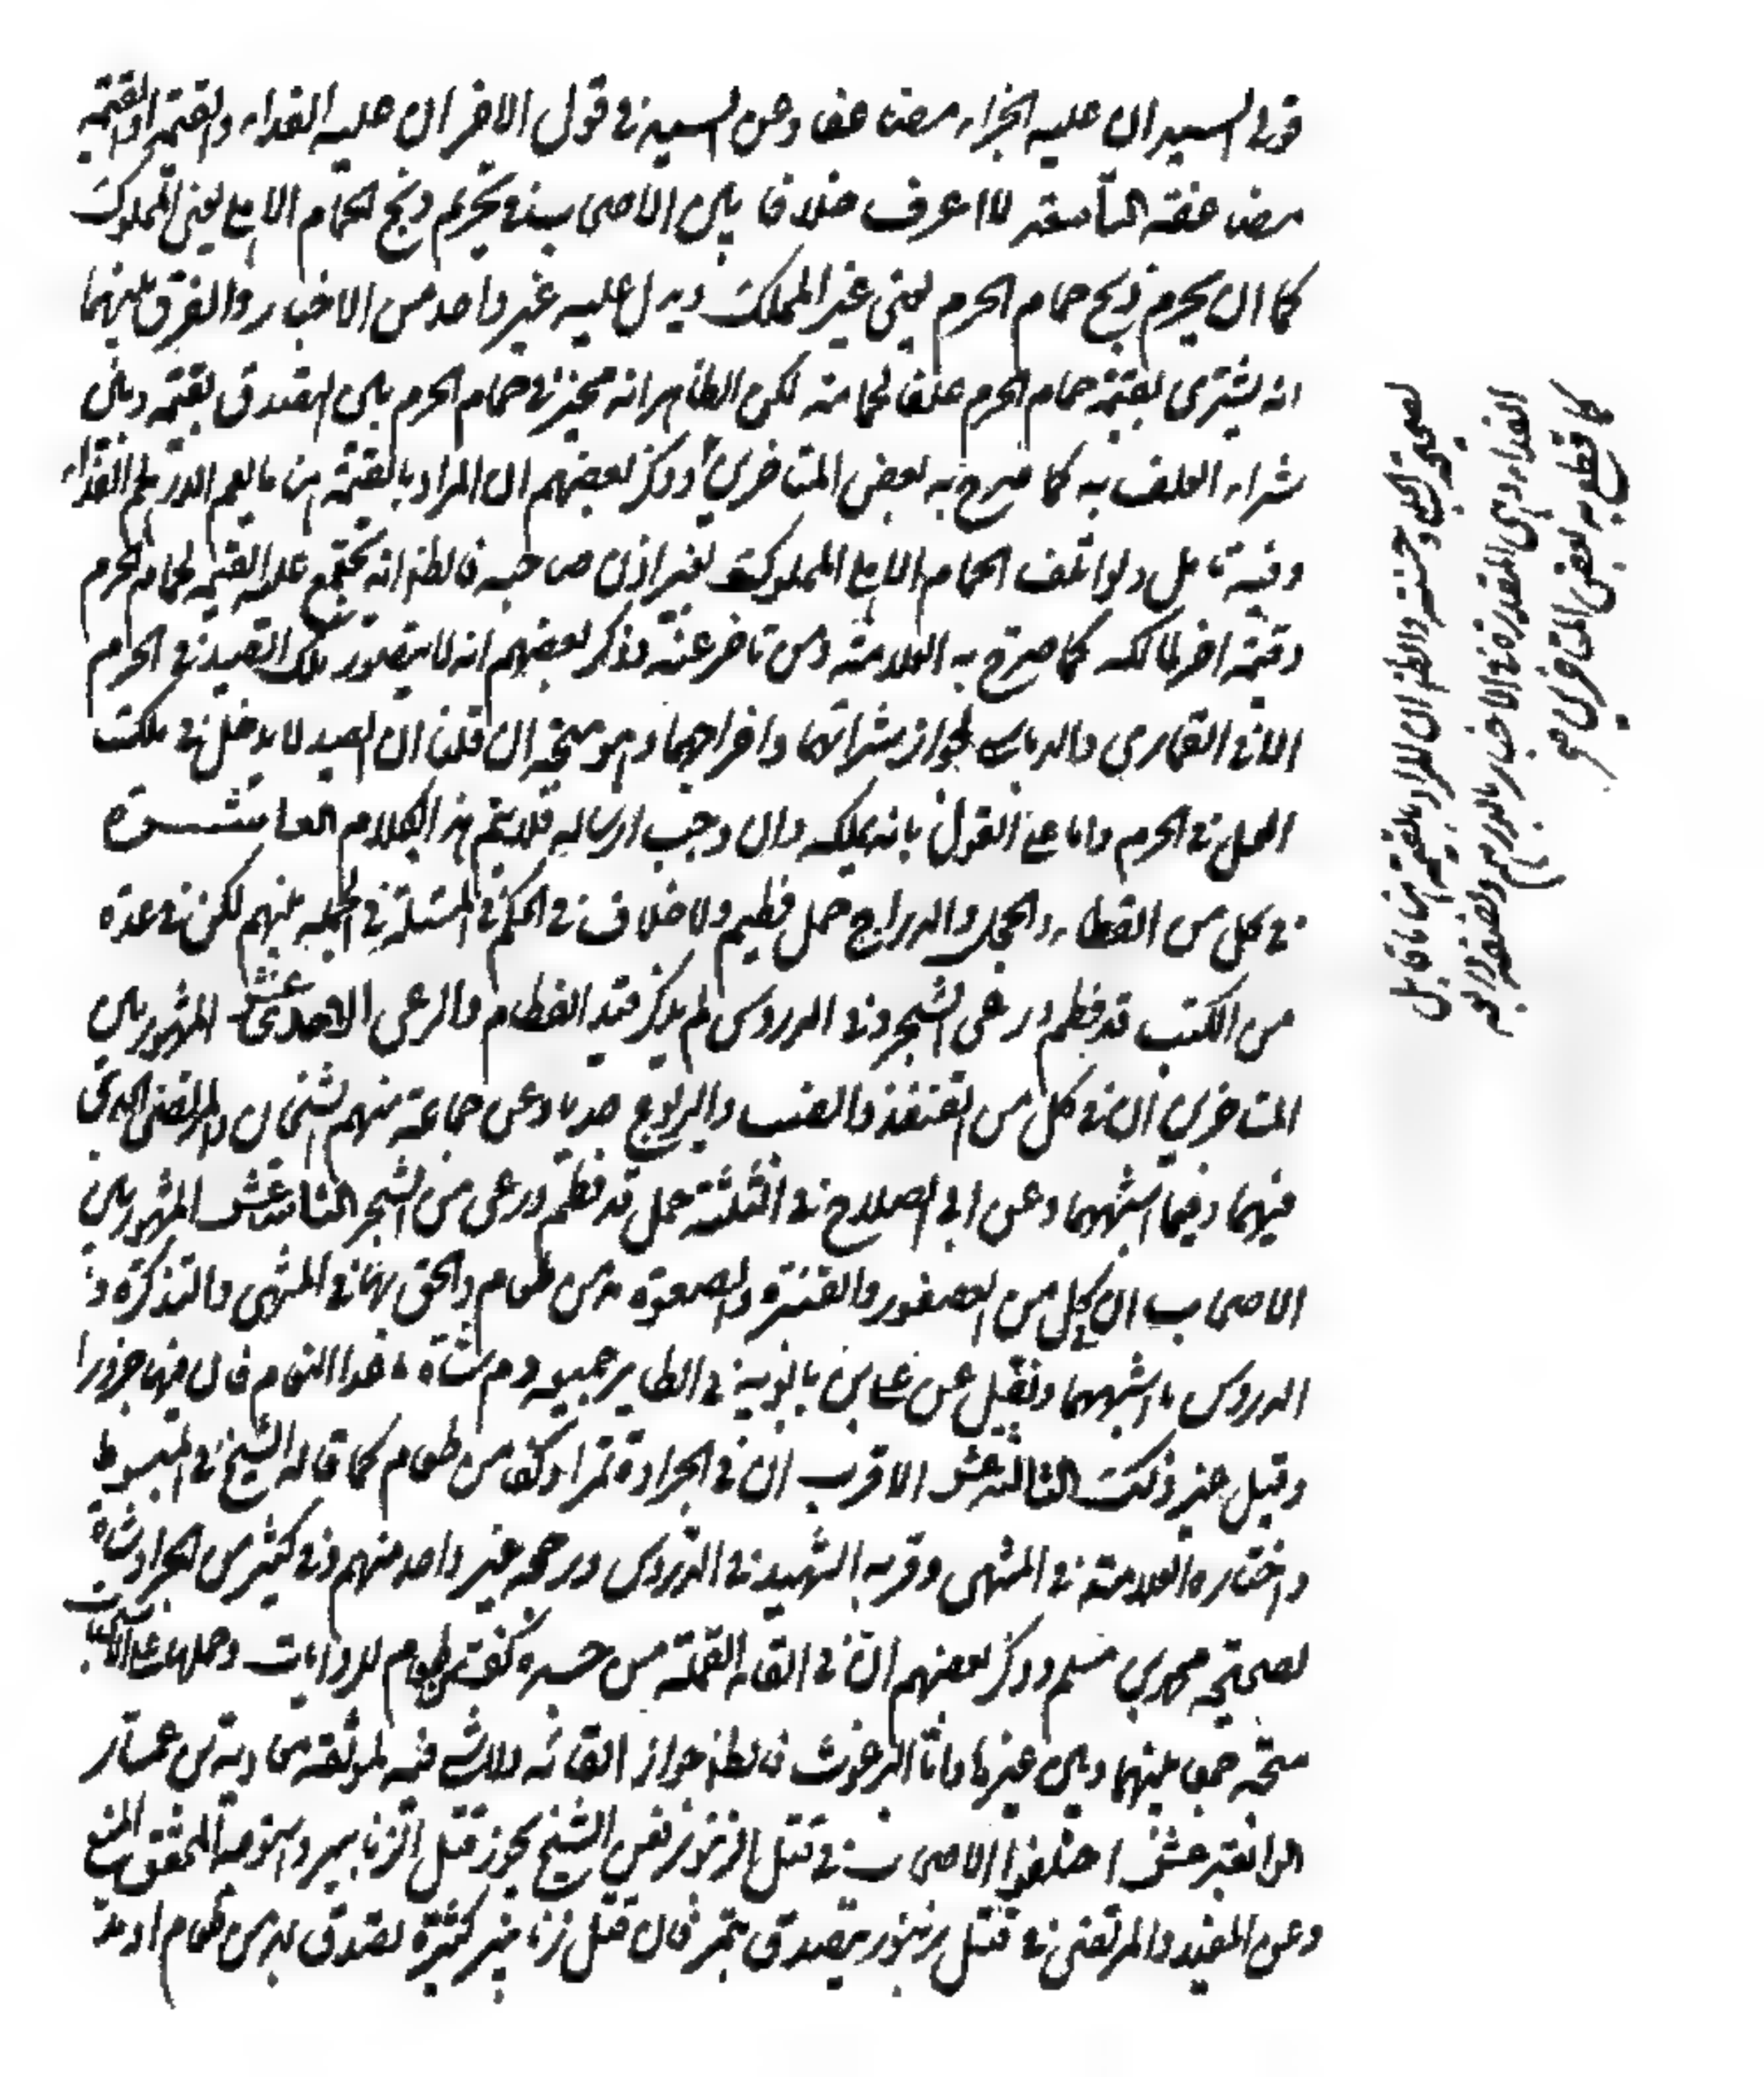 قول السيد ان عليه الجزاء مضاعفا وعن السيد في قول الاخر ان عليه الفداء والقيمة او القيمة
مضاعفة التاسعة لا اعرف خلافا بين الاصحاب في تحريم ذبح الحمام الاهلي يعني المملوك
كما ان يحرم ذبح حمام الحرم يعني غير المملوك ويدل عليه غير واحد من الاخبار والفرق بينهما
انه يشتري بقيمة حمام الحرم علفا لحمامه لكن الظاهر انه مخير في حمام الحرم بين التصدق بقيمته وبين
شراء العلف به كما صرح به بعض المتاخرين وذكر بعضهم ان المراد بالقيمة هنا ما يعم الدرهم الفداء
وفيه تامل ولو اتلف الحمام الاهلي المملوك بغير اذن صاحبه فالظ انه تجتمع عليه القيمة لحمام الحرم
وقيمة اخر لمالكه كما صرح به العلامة ومن تاخر عنه وذكر بعضهم انه لا يتصور تملك الصيد في الحرم
الا في القماري والدباسي لجواز شرائهما واخراجهما وهو متجه ان قلنا ان الصيد لا يدخل في ملك
المحل في الحرم واما على القول بانه يملكه وان وجب ارساله فلا يتم هذا الكلام العاشرة
في كل من القطاء والحجل والدراج حمل فطيم ولا خلاف في الحكم في المسئلة في الجملة بينهم لكن في عدة
من الكتب قد فطم ورعى الشجر وفي الدروس لم يذكر قيد الفطام والرعي الاحدى عشر المشهور بين
المتاخرين ان في كل من القنفذ والضب واليربوع جديا وعن جماعة منهم الشيخان والمرتضى الحاق
فيهما وفيما اشبههما وعن ابي الصلاح في الثلثة حمل قد فطم ورعى من الشجر الثانية عشر المشهور بين
الاصحاب ان لكل من العصفور والقنبرة والصعوة مد من طعام والحق بها في المنتهى والتذكرة و
الدروس ما اشبهها ونقل عن علي بن بابويه في الطاير جميعه دم شاة ما عدا النعام فان فيها جزورا
وقيل غير ذلك الثالثة عشر الاقرب ان في الجرادة تمرا او كفا من طعام كما قاله الشيخ في المبسوط
واختاره العلامة في المنتهى وقربه الشهيد في الدروس ورجحه غير واحد منهم وفي كثير من الجراد شاة
لصحيحة محمد بن مسلم وذكر بعضهم ان في القاء القملة من جسده كف من طعام للروايات وحملها على الاستحباب
متجه جمعا بينها وبين غيرها واما البرغوث فالظ جواز القائه ولا شيء فيه لموثقة معاوية بن عمار
الرابعة عشر اختلف الاصحاب في قتل الزنبور فعن الشيخ يجوز قتل الزنابير واستوجه المحقق المنع
وعن المفيد والمرتضى في قتل زنبور يتصدق بتمر فان قتل زنابير كثيرة تصدق بمد من طعام او مد
لصحيحة الحلبي وحسنته والظ ان المراد بالقيمة هنا ما قابل
الفداء وهي المقدرة في الاخبار بالدرهم ونصفه وربعه
كما قطع به بعض المتاخرين منه